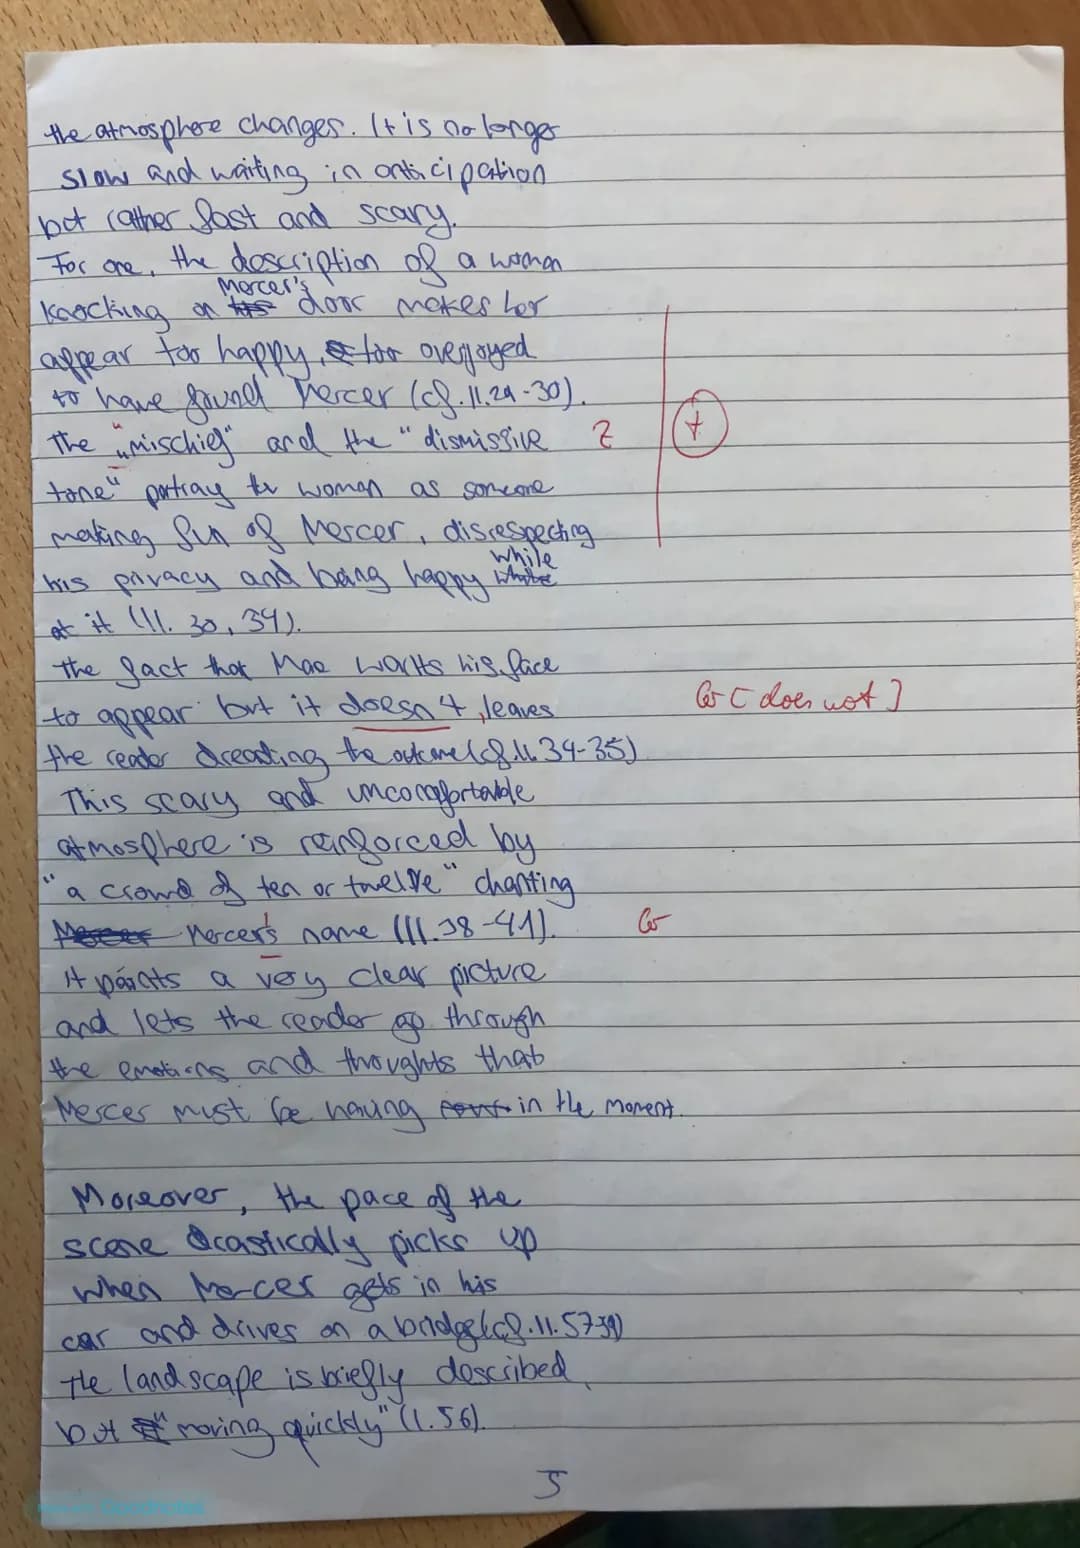 the atmosphere changes. It is no longer
slow and waiting in anticipation
but rather fast and scary.
For one, the description of a woman
knocking on Mercer's door makes her
appear too happy, too overjoyed
to have found Mercer (cf. ll. 29-30).
The "mischief" and the "dismissive Z +
tone" portray the woman as someone
making fun of Mercer, disrespecting
his privacy and being happy while
at it (ll. 30, 34).
The fact that Mae waits his face
to appear but it doesn't, leaves Gr [does not]
the reader dreading the outcome (cf. ll. 34-35)
This scary and uncomfortable
atmosphere is reinforced by
"a crowd of ten or twelve" chanting
Mercer's name (ll. 38-41). Gr
It paints a very clear picture
and lets the reader go through
the emotions and thoughts that
Mercer must be having in the moment.
Moreover, the pace of the
scene drastically picks up
when Mercer gets in his
car and drives on a bridge (cf. ll. 57-59)
The landscape is briefly described,
but "moving quickly" (l. 56).
5